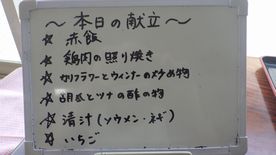 ～本日の献立～
☆ 赤飯
☆ 鶏肉の照り焼き
☆ カリフラワーとウィンナーの炒め物
☆ 胡瓜とツナの酢の物
☆ 清汁(ソウメン・ネギ)
☆ いちご